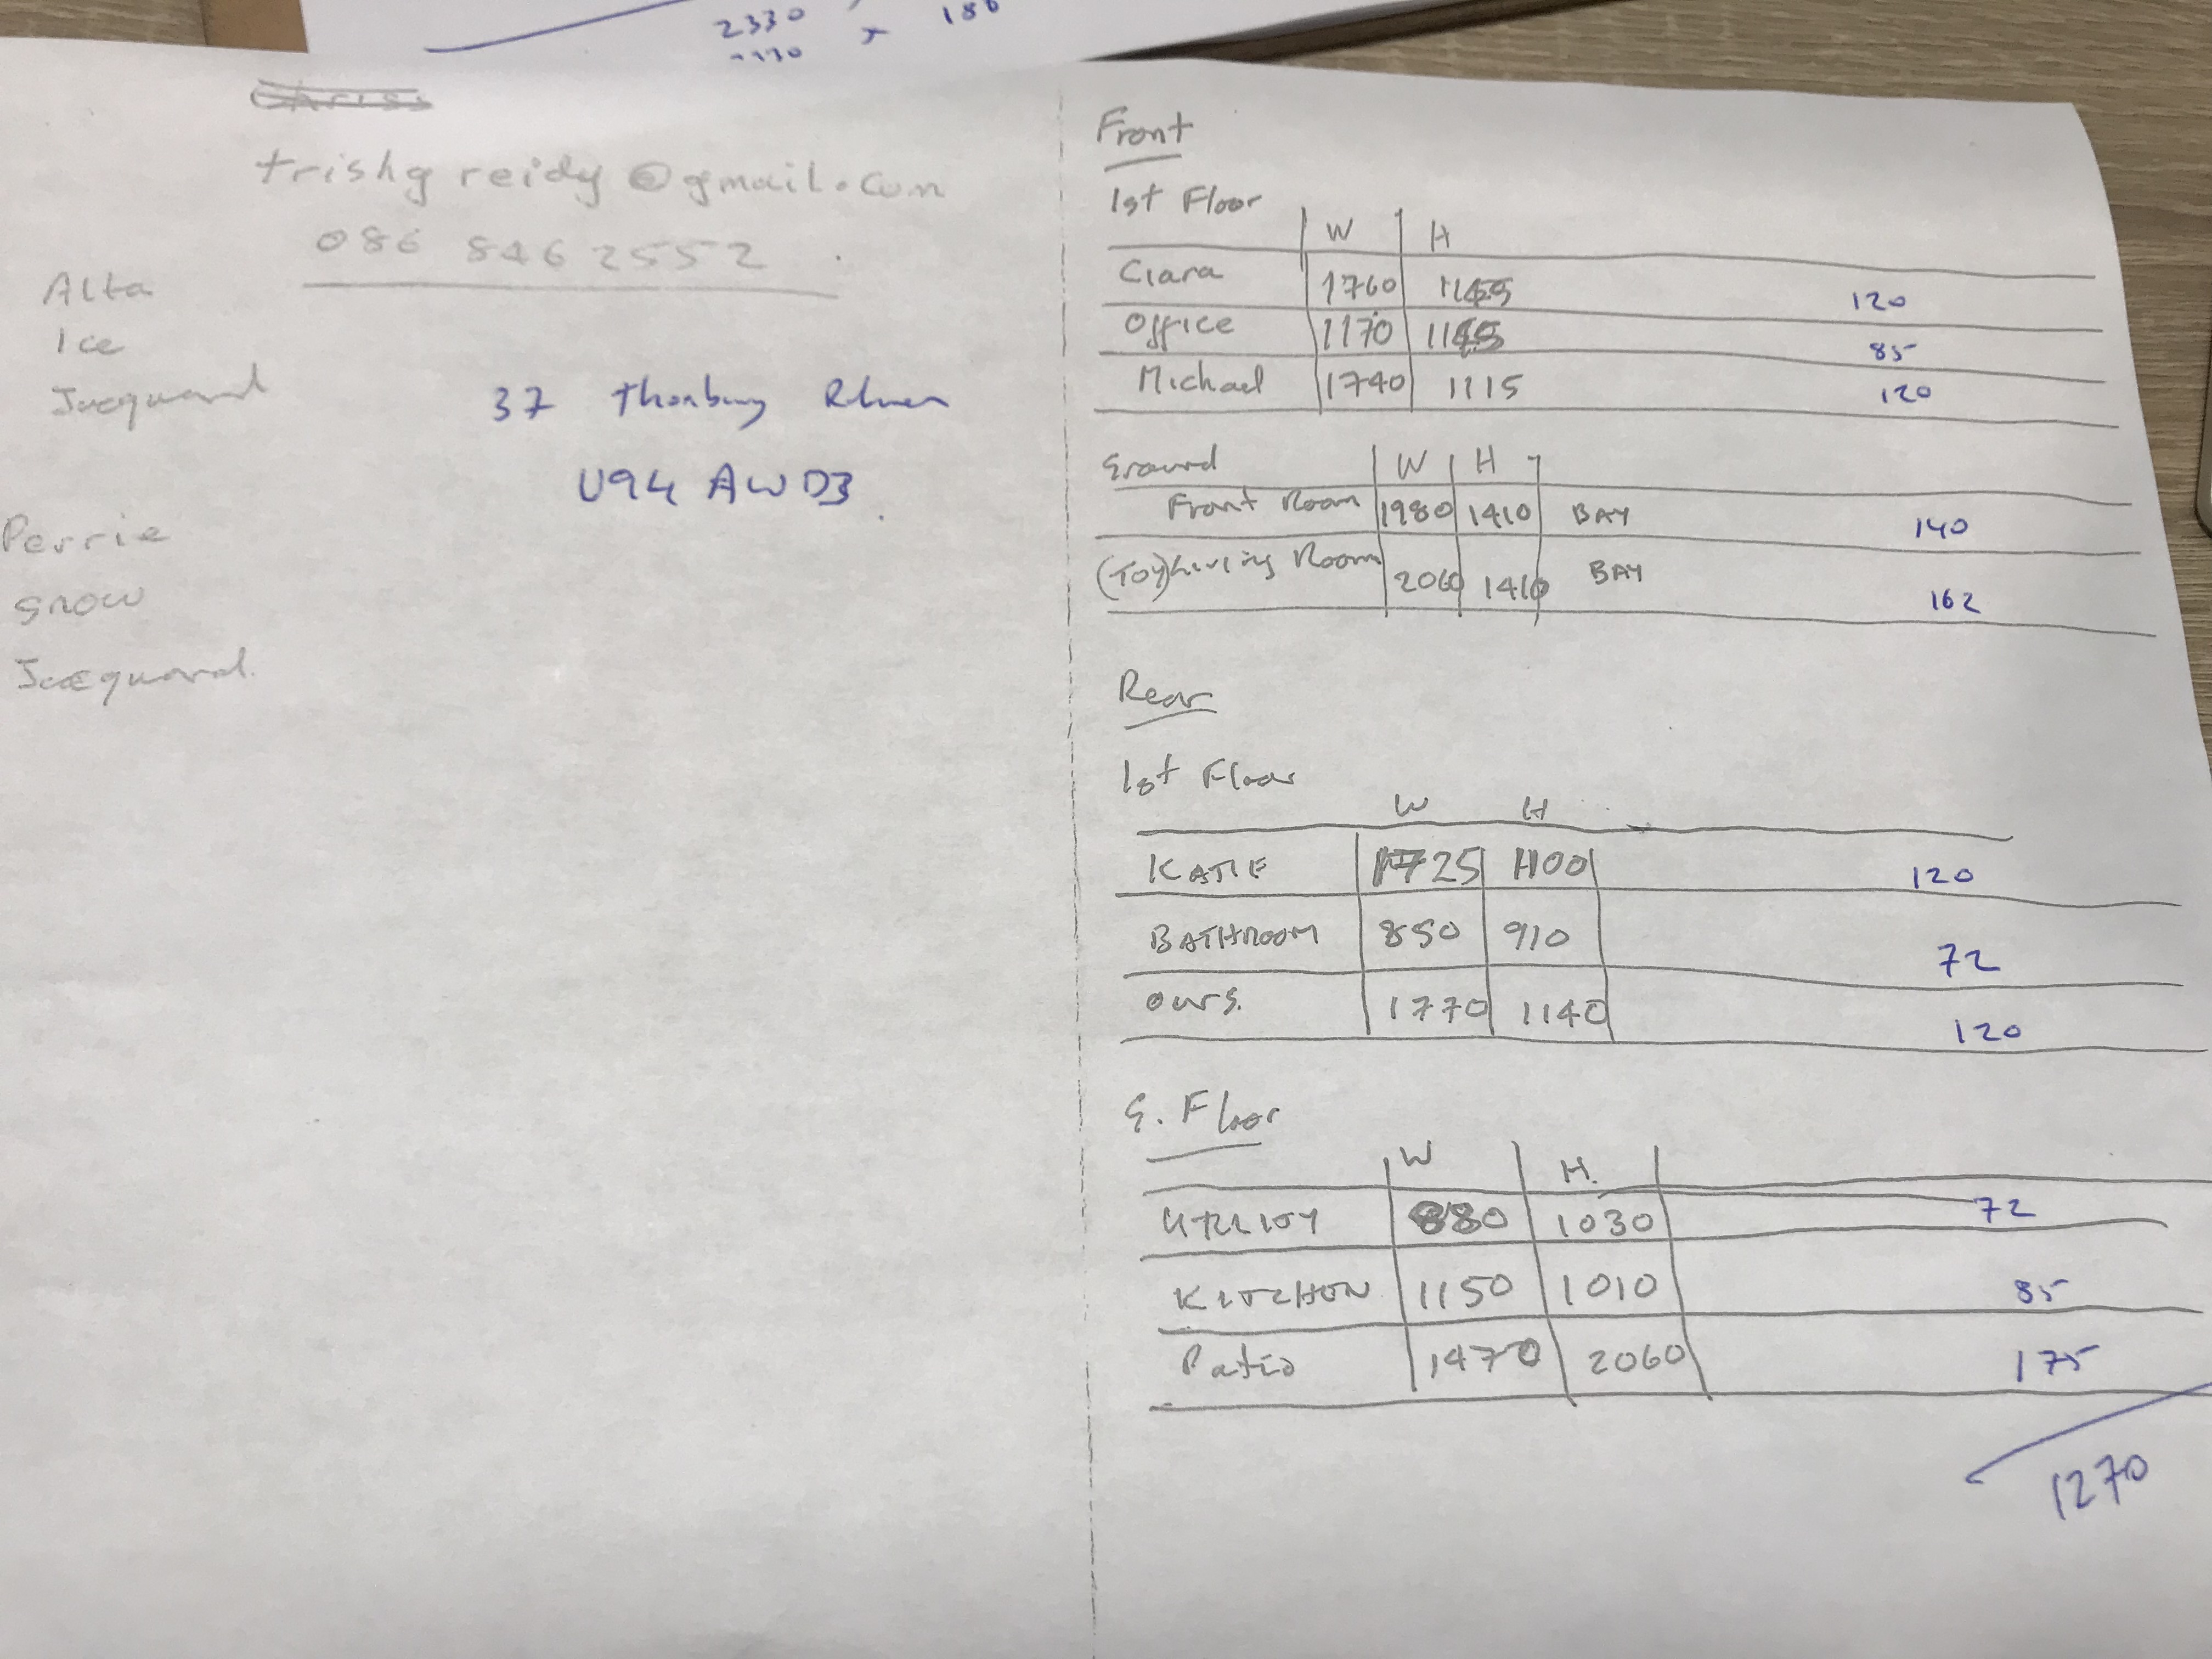 2330
x 186
trishgreidy@gmail.com
086 846 2552
Alta
Ice
Jacquard
37
V94 AWD3
Perrie
Snow
Jacquard.
Front
1st Floor
W H
Ciara 1760 120
Office 1170 85
Michael 1740 1115 120
Ground W H
Front Room 1980 1410 BAY 140
(Toy) Living Room 2060 1410 BAY 162
Rear
1st Floor
W H
KATIE 1725 1100 120
BATHROOM 850 910 72
OURS. 1770 1140 120
G. Floor
W H.
UTILITY 880 1030 72
KITCHEN 1150 1010 85
Patio 1470 2060 175
1270